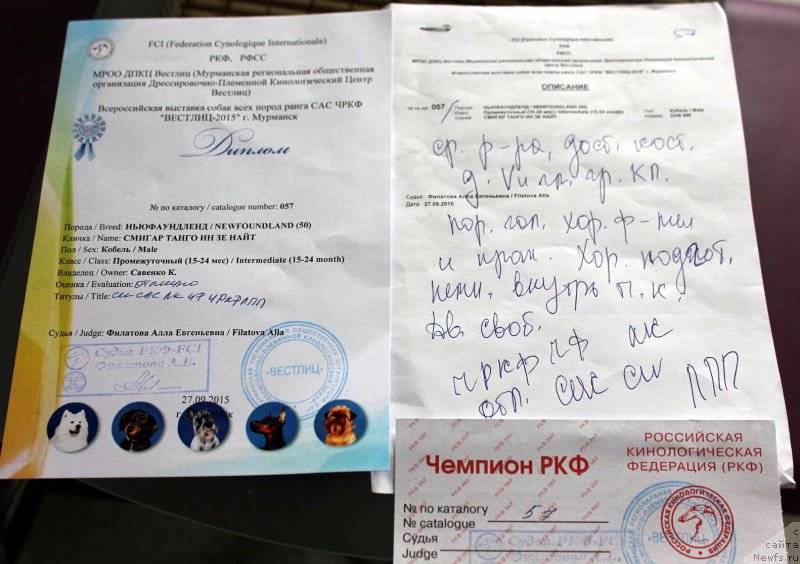 FCI (Federation Cynologique Internationale)
РКФ, РФСС
МРОО ДПКЦ Вестлиц (Мурманская региональная общественная
организация Дрессировочно-Племенной Кинологический Центр
Вестлиц)
Всероссийская выставка собак всех пород ранга САС ЧРКФ
"ВЕСТЛИЦ-2015" г. Мурманск
Диплом
№ по каталогу / catalogue number: 057
Порода / Breed: НЬЮФАУНДЛЕНД / NEWFOUNDLAND (50)
Кличка / Name: СМИГАР ТАНГО ИН ЗЕ НАЙТ
Пол / Sex: Кобель / Male
Класс / Class: Промежуточный (15-24 мес) / Intermediate (15-24 month)
Владелец / Owner: Савенко К.
Оценка / Evaluation: отлично
Титулы / Title: САС ЛК ЧРКФ ЛПП
Судья / Judge: Филатова Алла Евгеньевна / Filatova Alla
Судья РКФ-FCI
Филатова А.Е.
«ВЕСТЛИЦ»
27.09.2015
г. Мурманск
57
FCI (Federation Cynologique Internationale)
РКФ
РФСС
МРОО ДПКЦ Вестлиц (Мурманская региональная общественная организация Дрессировочно-Племенной Кинологический
Центр Вестлиц)
Всероссийская выставка собак всех пород ранга САС ЧРКФ "ВЕСТЛИЦ-2015" г. Мурманск
ОПИСАНИЕ
№ по кат 057
Порода НЬЮФАУНДЛЕНД / NEWFOUNDLAND (50)
Класс Промежуточный (15-24 мес) / Intermediate (15-24 month)
Кличка СМИГАР ТАНГО ИН ЗЕ НАЙТ
Пол Кобель / Male
ср. р-ра, дост. кост.
Судья Филатова Алла Евгеньевна / Filatova Alla
Дата 27.09.2015
пор. гол. хор. ф-мы
и Хор.
внутрь п.к.
дв. своб.
ЧРКФ
отл. САС ЛПП
Чемпион РКФ
РОССИЙСКАЯ
КИНОЛОГИЧЕСКАЯ
ФЕДЕРАЦИЯ (РКФ)
№ по каталогу
№ catalogue 57
Судья
Judge
Судья РКФ-FCI
РОССИЙСКАЯ КИНОЛОГИЧЕСКАЯ ФЕДЕРАЦИЯ
С
сайта
Newfs.ru